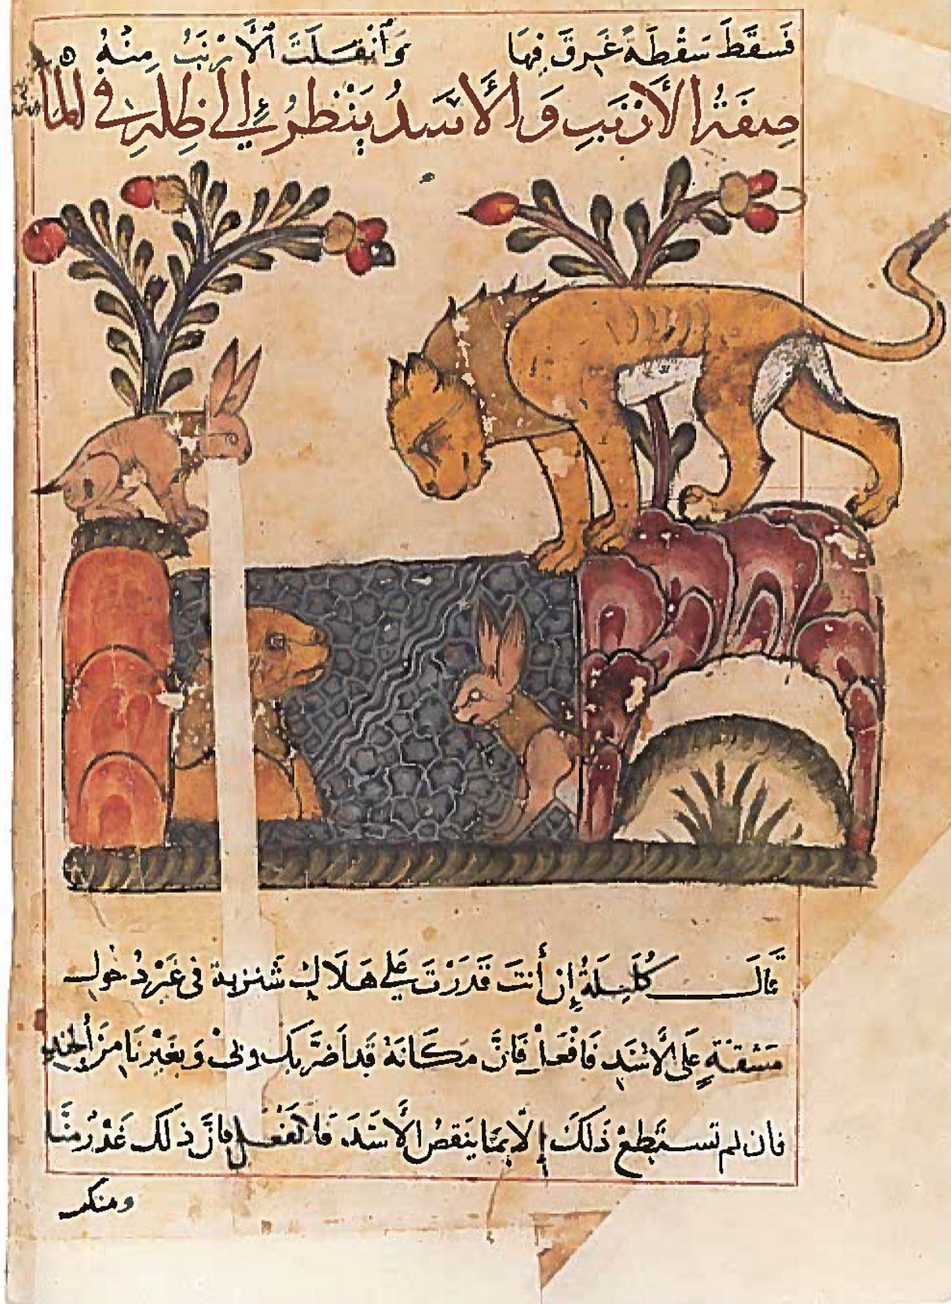 فَسَقَطَ سَقْطَةً غَرِقَ فِيهَا وَانْفَلَتَ الْأَرْنَبُ مِنْهُ
صِفَةُ الْأَرْنَبِ وَالْأَسَدُ يَنْظُرُ إِلَى ظِلِّهِ فِي الْمَاءِ
قَالَ كَلِيلَةُ إِنْ أَنْتَ قَدَرْتَ عَلَى هَلَاكِ شَنْزَبَةَ فِي غَيْرِ دُخُولِ
مَشَقَّةٍ عَلَى الْأَسَدِ فَافْعَلْ فَإِنَّ مَكَانَهُ قَدْ أَضَرَّ بِكَ وَبِي وَبِغَيْرِنَا مِنَ الْجُنْدِ
فَإِنْ لَمْ تَسْتَطِعْ ذَلِكَ إِلَّا بِمَا يَنْقُصُ الْأَسَدَ فَلَا تَفْعَلْ فَإِنَّ ذَلِكَ غَدْرٌ مِنَّا
ومنك